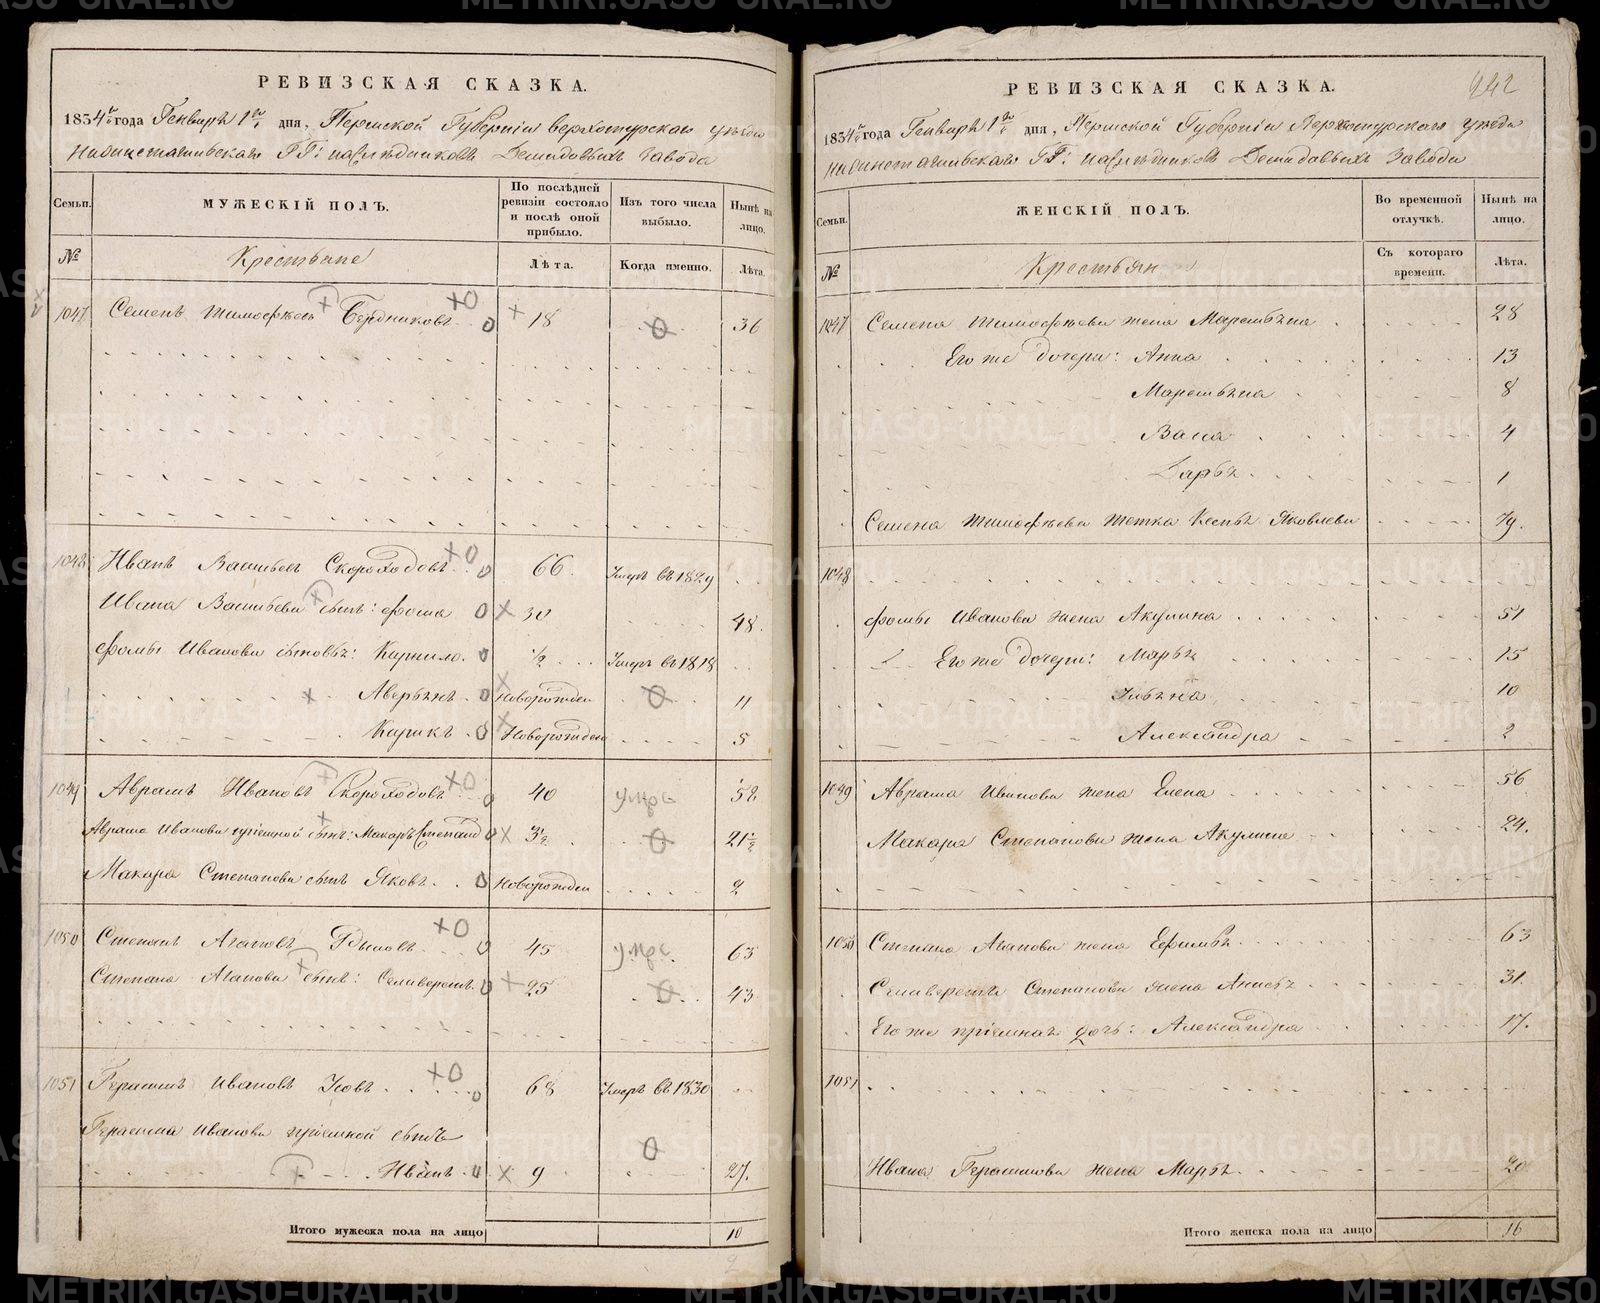 РЕВИЗСКАЯ СКАЗКА.
1834го года Генваря 1го дня, Пермской Губернiи Верхотурскаго уезда
Нижнетагильскаго ГГ: наследниковъ Демидовыхъ Завода
Семьи.
МУЖЕСКIЙ ПОЛЪ.
По послѣдней ревизiи состояло и послѣ оной прибыло.
Изъ того числа выбыло.
Нынѣ на лицо.
№
Крестьяне
Лѣта.
Когда именно.
Лѣта.
1047 Семенъ Тимофѣевъ Бердниковъ 18 36
1048 Иванъ Васильевъ Скороходовъ 66 Умеръ въ 1829
Ивана Васильева сынъ: Фома 30 48.
Фомы Иванова сыновья: Кирило. 1/2 Умеръ въ 1818
Аверьянъ Новорожден 11
Кирикъ Новорожден 5
1049 Аврамъ Ивановъ Скороходовъ 40 умре 58
Аврама Иванова прiемной сынъ: Макаръ Степанов 3 1/2 21 1/2
Макара Степанова сынъ Яковъ Новорожден 2
1050 Степанъ Агаповъ 45 умре. 63
Степана Агапова сынъ: Селиверстъ 25 43
1051 Герасимъ Ивановъ Усовъ 68 Умеръ въ 1830
Герасима Иванова прiемной сынъ
Иванъ 9 27.
Итого мужеска пола на лицо 10
242
РЕВИЗСКАЯ СКАЗКА.
1834го года Генваря 1го дня, Пермской Губернiи Верхотурскаго уезда
Нижнетагильскаго ГГ: наследниковъ Демидовыхъ Завода
Семьи.
ЖЕНСКIЙ ПОЛЪ.
Во временной отлучкѣ.
Нынѣ на лицо.
№
Крестьян
Съ котораго времени.
Лѣта.
1047 Семена Тимофѣева жена Маремьяна 28
Его же дочери: Анна 13
Маремьяна 8
4
Дарья 1
Семена Тимофѣева тетка Яковлева 79.
1048
Фомы Иванова жена Акулина 51
Его же дочери: Марья 15
Ульяна 10
Александра 2
1049 Аврама Иванова жена Елена 56
Макара Степанова жена Акулина 24.
1050 Степана Агапова жена Ефимья 63
Селиверста Степанова жена Анисья 31.
Его же прiемная дочь: Александра 17.
1051
Ивана Герасимова жена Марья 20
Итого женска пола на лицо 16
METRIKI.GASO-URAL.RU